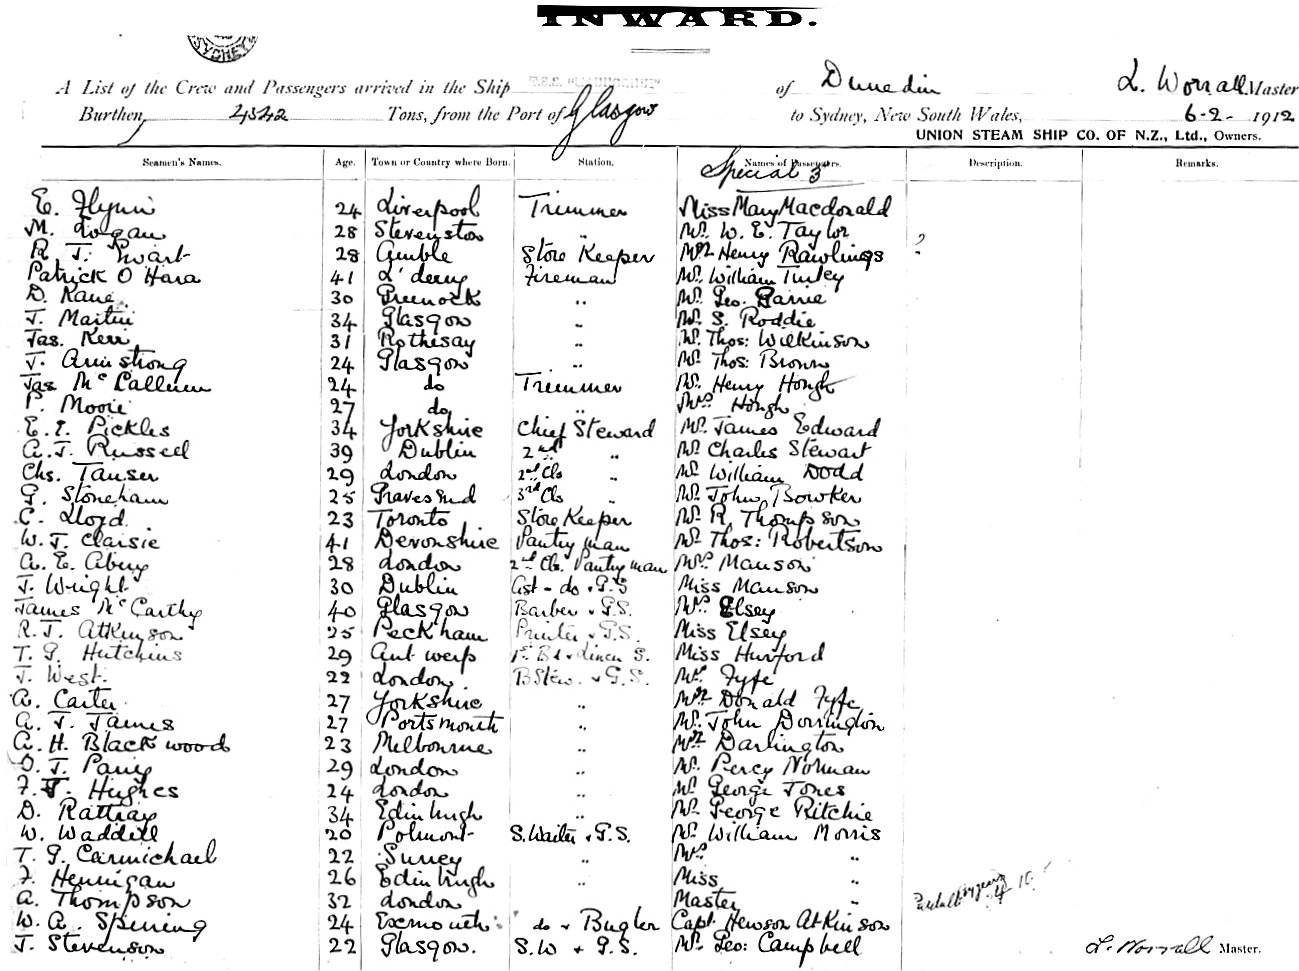 INWARD.
SYDNEY
A List of the Crew and Passengers arrived in the Ship of Dunedin L. Worrall Master
Burthen, 4342 Tons, from the Port of Glasgow to Sydney, New South Wales, 6-2- 1912
UNION STEAM SHIP CO. OF N.Z., Ltd., Owners.
Seamen's Names. Age. Town or Country where Born. Station. Names of Passengers. Description. Remarks.
Special 3
E. Flynn 24 Liverpool Trimmer Miss Mary Macdonald
M. Logan 28 Stevenston " Mr. W. E. Taylor
R. J. 28 Amble Store Keeper Mr Henry Rawlings ?
Patrick O Hara 41 L'derry Fireman Mr. William Turley
D. Kane. 30 Greenock " Mr. Geo. Barrie
J. Martin 34 Glasgow " Mr. S. Roddie
Jas. Kerr 31 Rothesay " Mr. Thos: Wilkinson
J. Armstrong 24 Glasgow " Mr. Thos: Brown
Jas McCallum 24 do Trimmer Mr. Henry Hough
P. Moore 27 do " Mrs Hough
E. E. Pickles 34 Yorkshire Chief Steward Mr. James Edward
A. J. Russell 39 Dublin 2nd " Mr Charles Stewart
Chs. Tanser 29 London 2nd Cls " Mr William Dodd
G. Stoneham 25 Gravesend 3rd Cls " Mr. John Bowker
C. Lloyd 23 Toronto Store Keeper Mr. R. Thompson
W. J. Claisie 41 Devonshire Pantryman Mr Thos: Robertson
A. E. Abery 28 London 2nd Cls. Pantryman Mrs Manson
J. Wright 30 Dublin Ast - do & G.S Miss Manson
James McCarthy 40 Glasgow Barber & G.S. Mrs Elsey
R. J. Atkinson 25 Peckham Printer & G.S. Miss Elsey
T. G. Hutchins 29 Antwerp 1st B & Linen S. Miss Hurford
J. West. 22 London B Stew. & G.S. Mrs Fyfe
A. Carter 27 Yorkshire " Mr Donald Fyfe
A. J. James 27 Portsmouth " Mr. John Dorrington
A. H. Blackwood 23 Melbourne " Mr Darlington
O. J. Parry 29 London " Mr. Percy Norman
F. J. Hughes 24 London " Mr. George Jones
D. Rattray 34 Edinburgh Mr. George Ritchie
W. Waddell 20 Polmont S. Waiter & G.S. Mr William Morris
T. G. Carmichael 22 Surrey " Mrs "
F. Hennigan 26 Edinburgh " Miss "
A. Thompson 32 London " Master "
W. A. Spining 24 Exmouth do & Bugler Capt Hewson Atkinson
J. Stevenson 22 Glasgow. S.W & G.S. Mr. Geo: Campbell
L. Worrall Master.